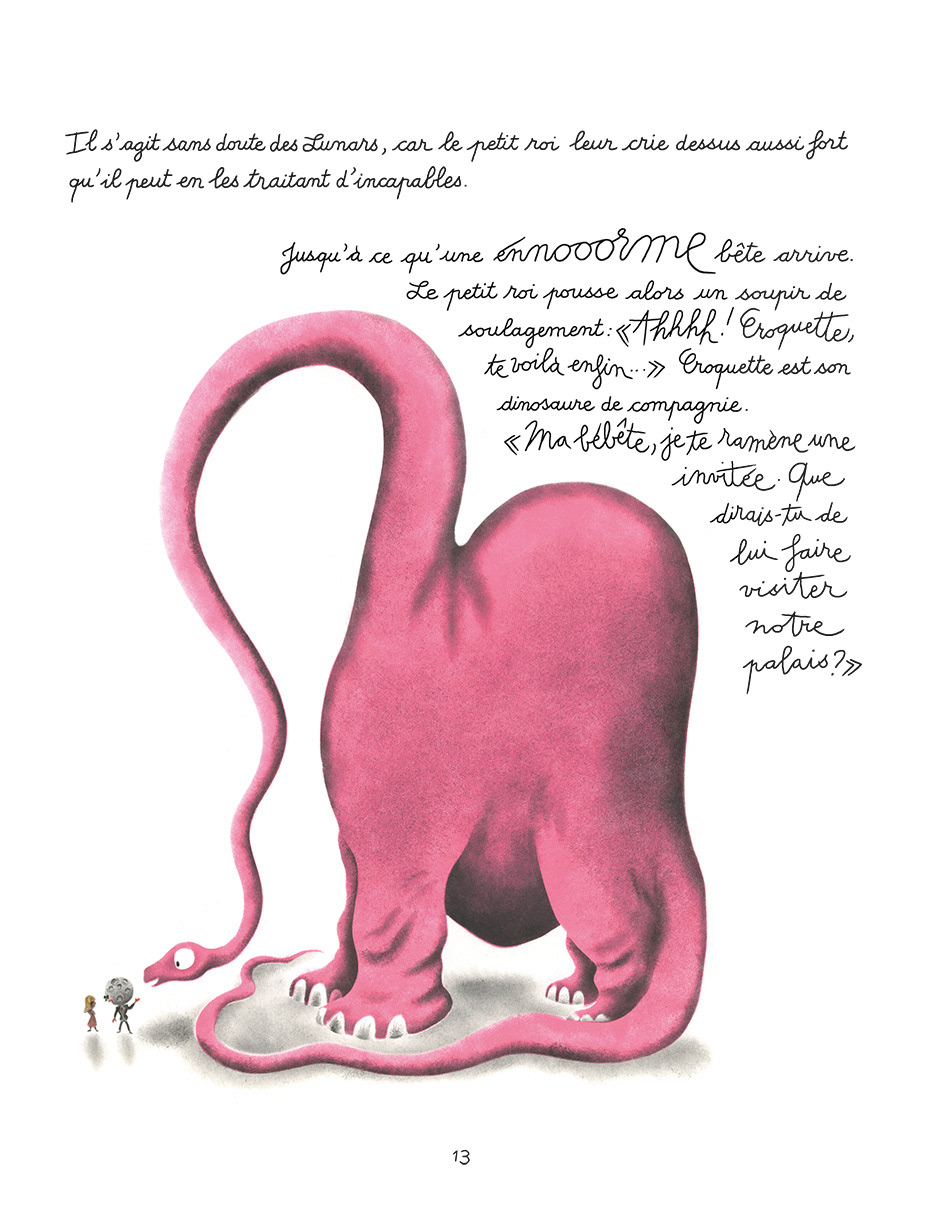 Il s'agit sans doute des Lunars, car le petit roi leur crie dessus aussi fort
qu'il peut en les traitant d'incapables.
Jusqu'à ce qu'une énnooorme bête arrive.
Le petit roi pousse alors un soupir de
soulagement : « Ahhhh ! Croquette,
te voilà enfin... » Croquette est son
dinosaure de compagnie.
« Ma bébête, je te ramène une
invitée. Que
dirais-tu de
lui faire
visiter
notre
palais ? »
13